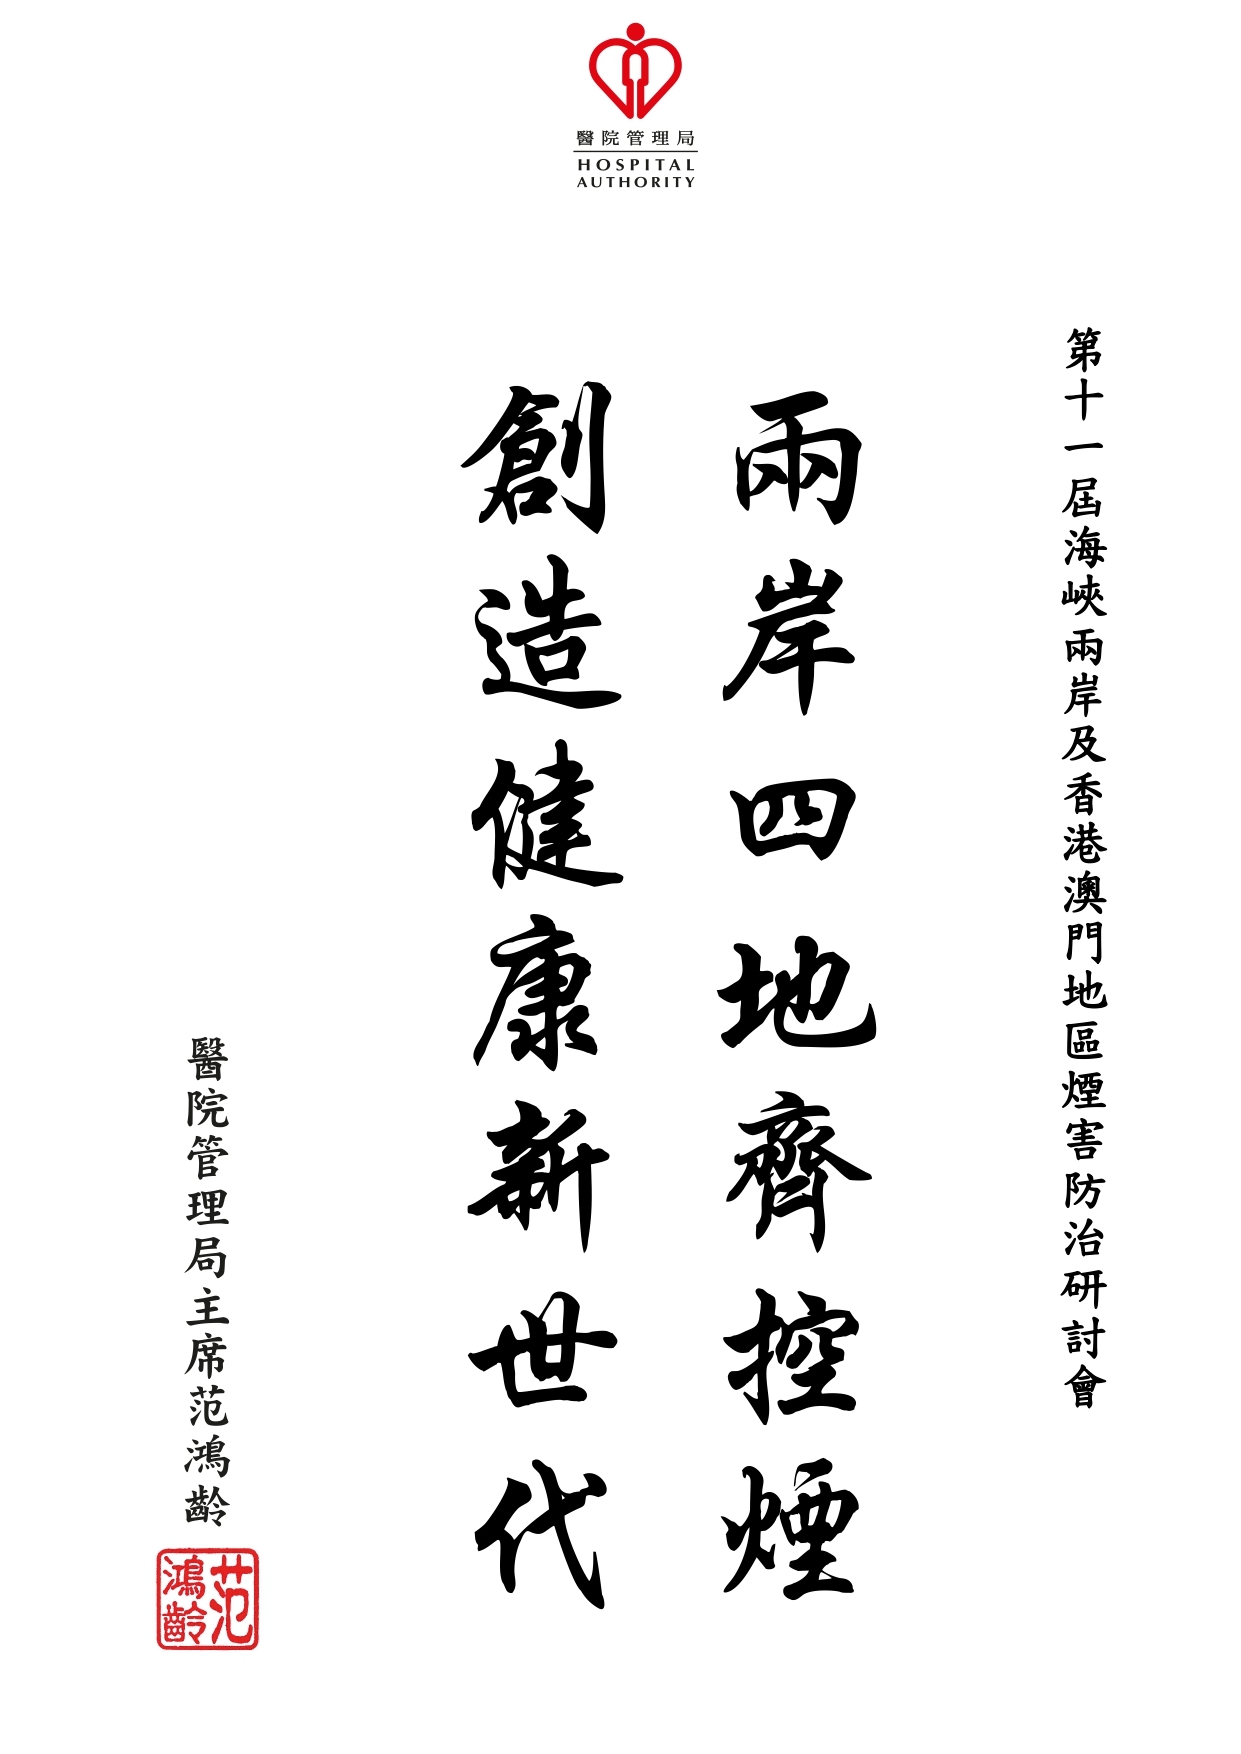 醫院管理局
HOSPITAL
AUTHORITY
第十一屆海峽兩岸及香港澳門地區煙害防治研討會
兩岸四地齊控煙
創造健康新世代
醫院管理局主席范鴻齡
范
鴻齡